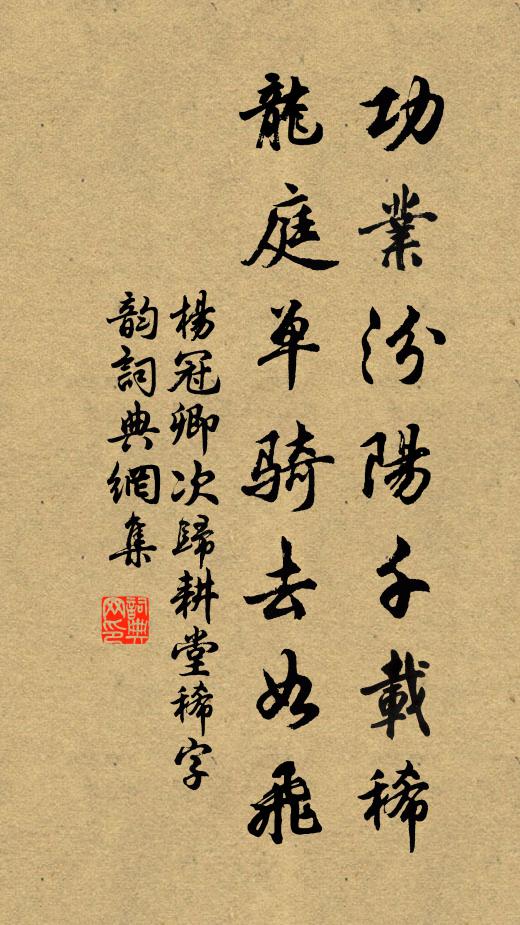 功業汾陽千載稀
龍庭单騎去如飛
楊冠卿次歸耕堂稀字
韵詞典網集
詞典
网印